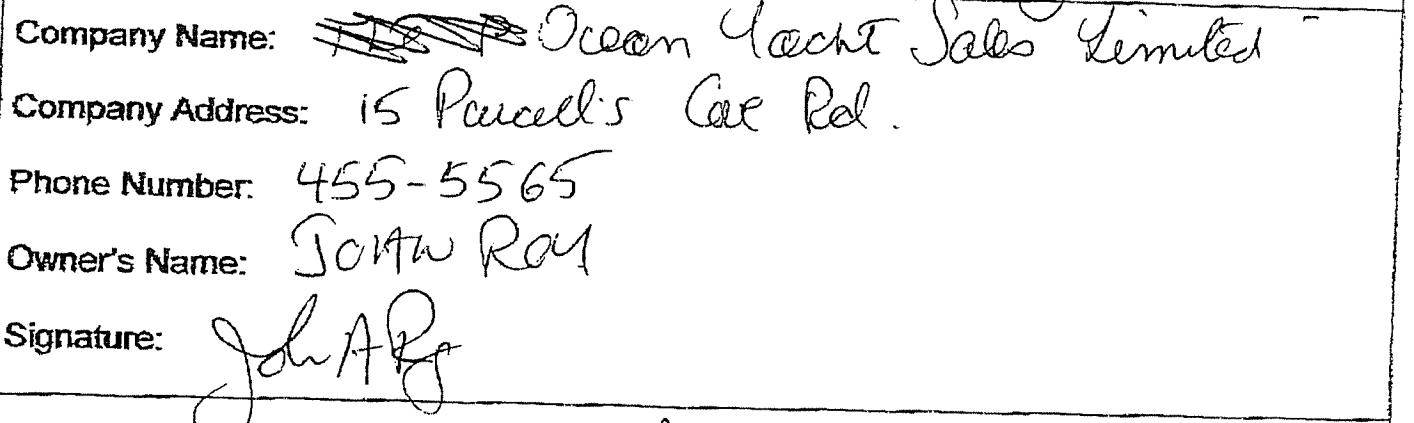 Company Name: Ocean Yacht Sales Limited
Company Address: 15 Purcell's Cove Rd.
Phone Number: 455-5565
Owner's Name: JOHN ROY
Signature: John A Roy